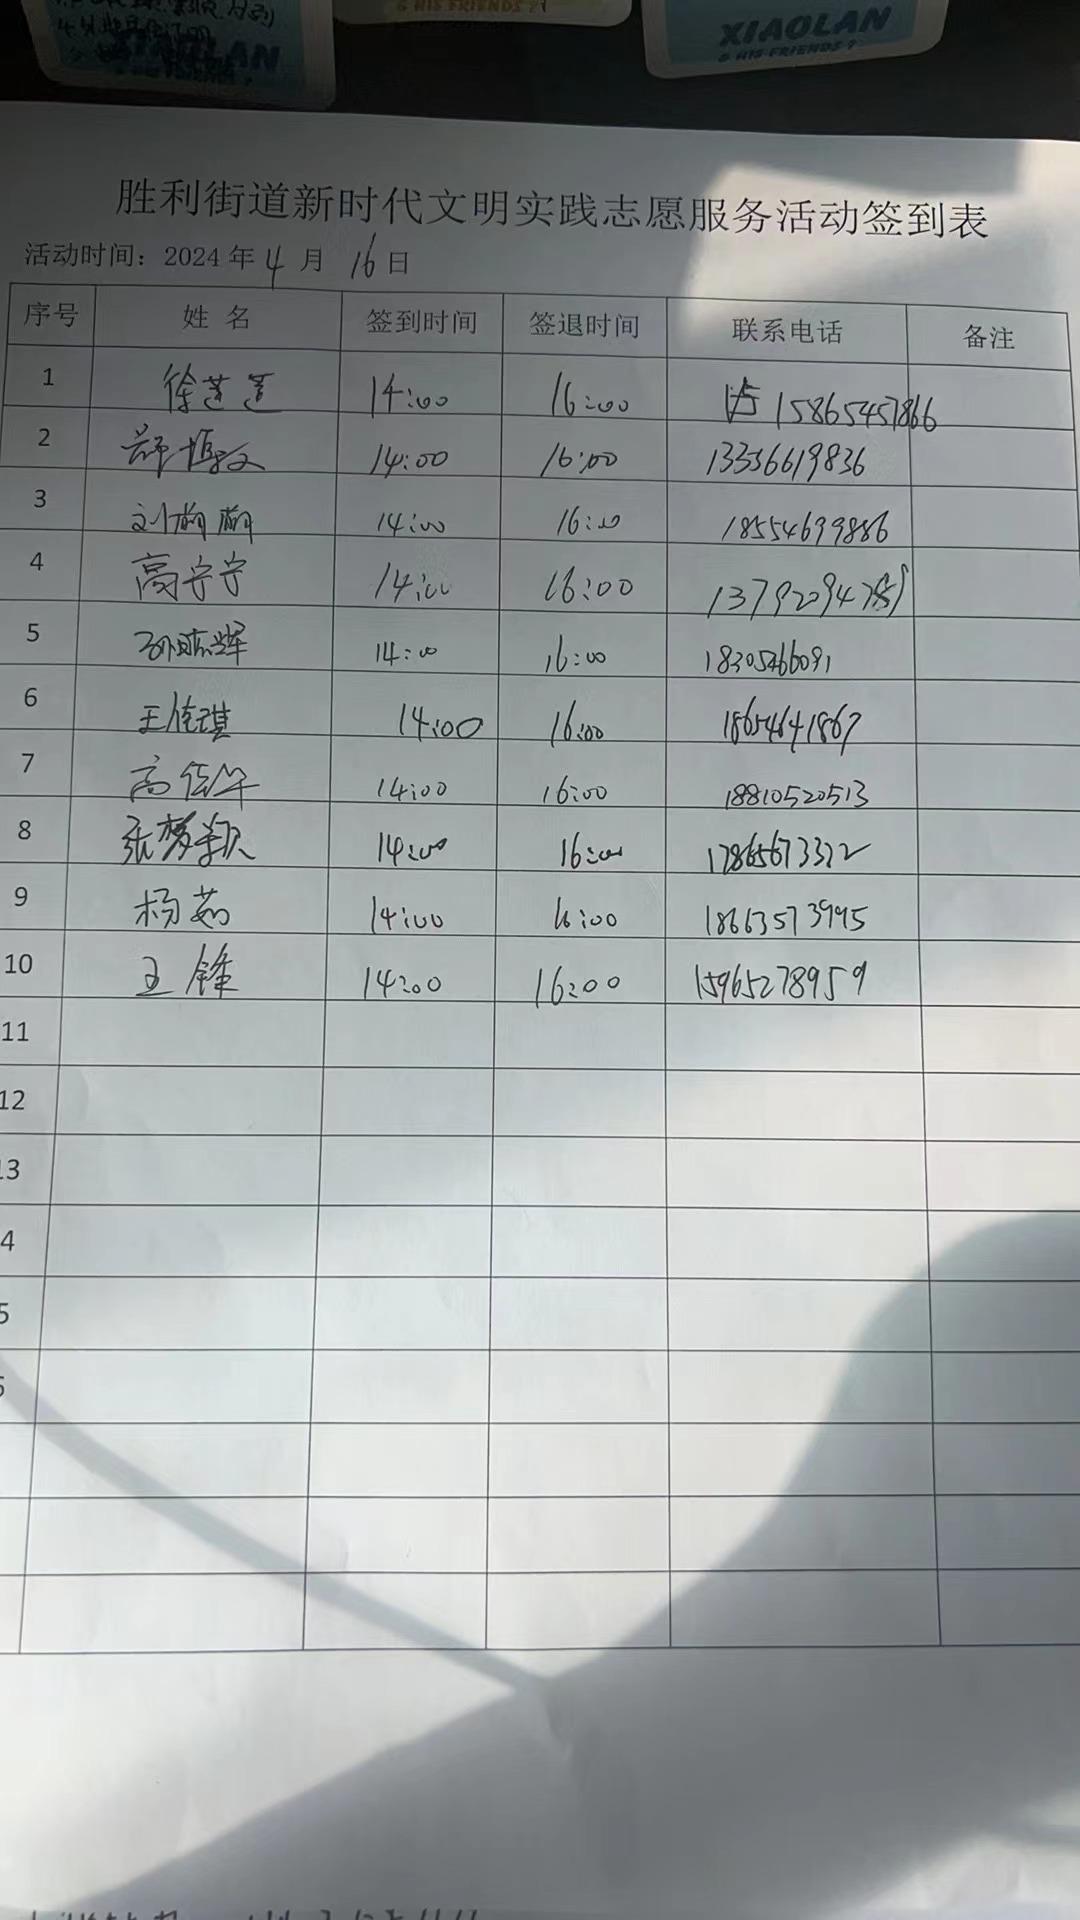 & HIS FRIENDS?
XIAOLAN
& HIS FRIENDS?
胜利街道新时代文明实践志愿服务活动签到表
活动时间：2024年 4 月 16 日
序号 姓 名 签到时间 签退时间 联系电话 备注
1 徐莲莲 14:00 16:00 15865457866
2 14:00 16:00 13336619836
3 刘嫡嫡 14:00 16:00 18554699886
4 高宁宁 14:00 16:00 137920947
5 孙晓辉 14:00 16:00 18305466091
6 王倩琪 14:00 16:00 18654641867
7 高佳华 14:00 16:00 18810520513
8 张梦颖 14:00 16:00 17865673322
9 杨茹 14:00 16:00 18663573995
10 王锋 14:00 16:00 15965278959
11
12
13
4
5